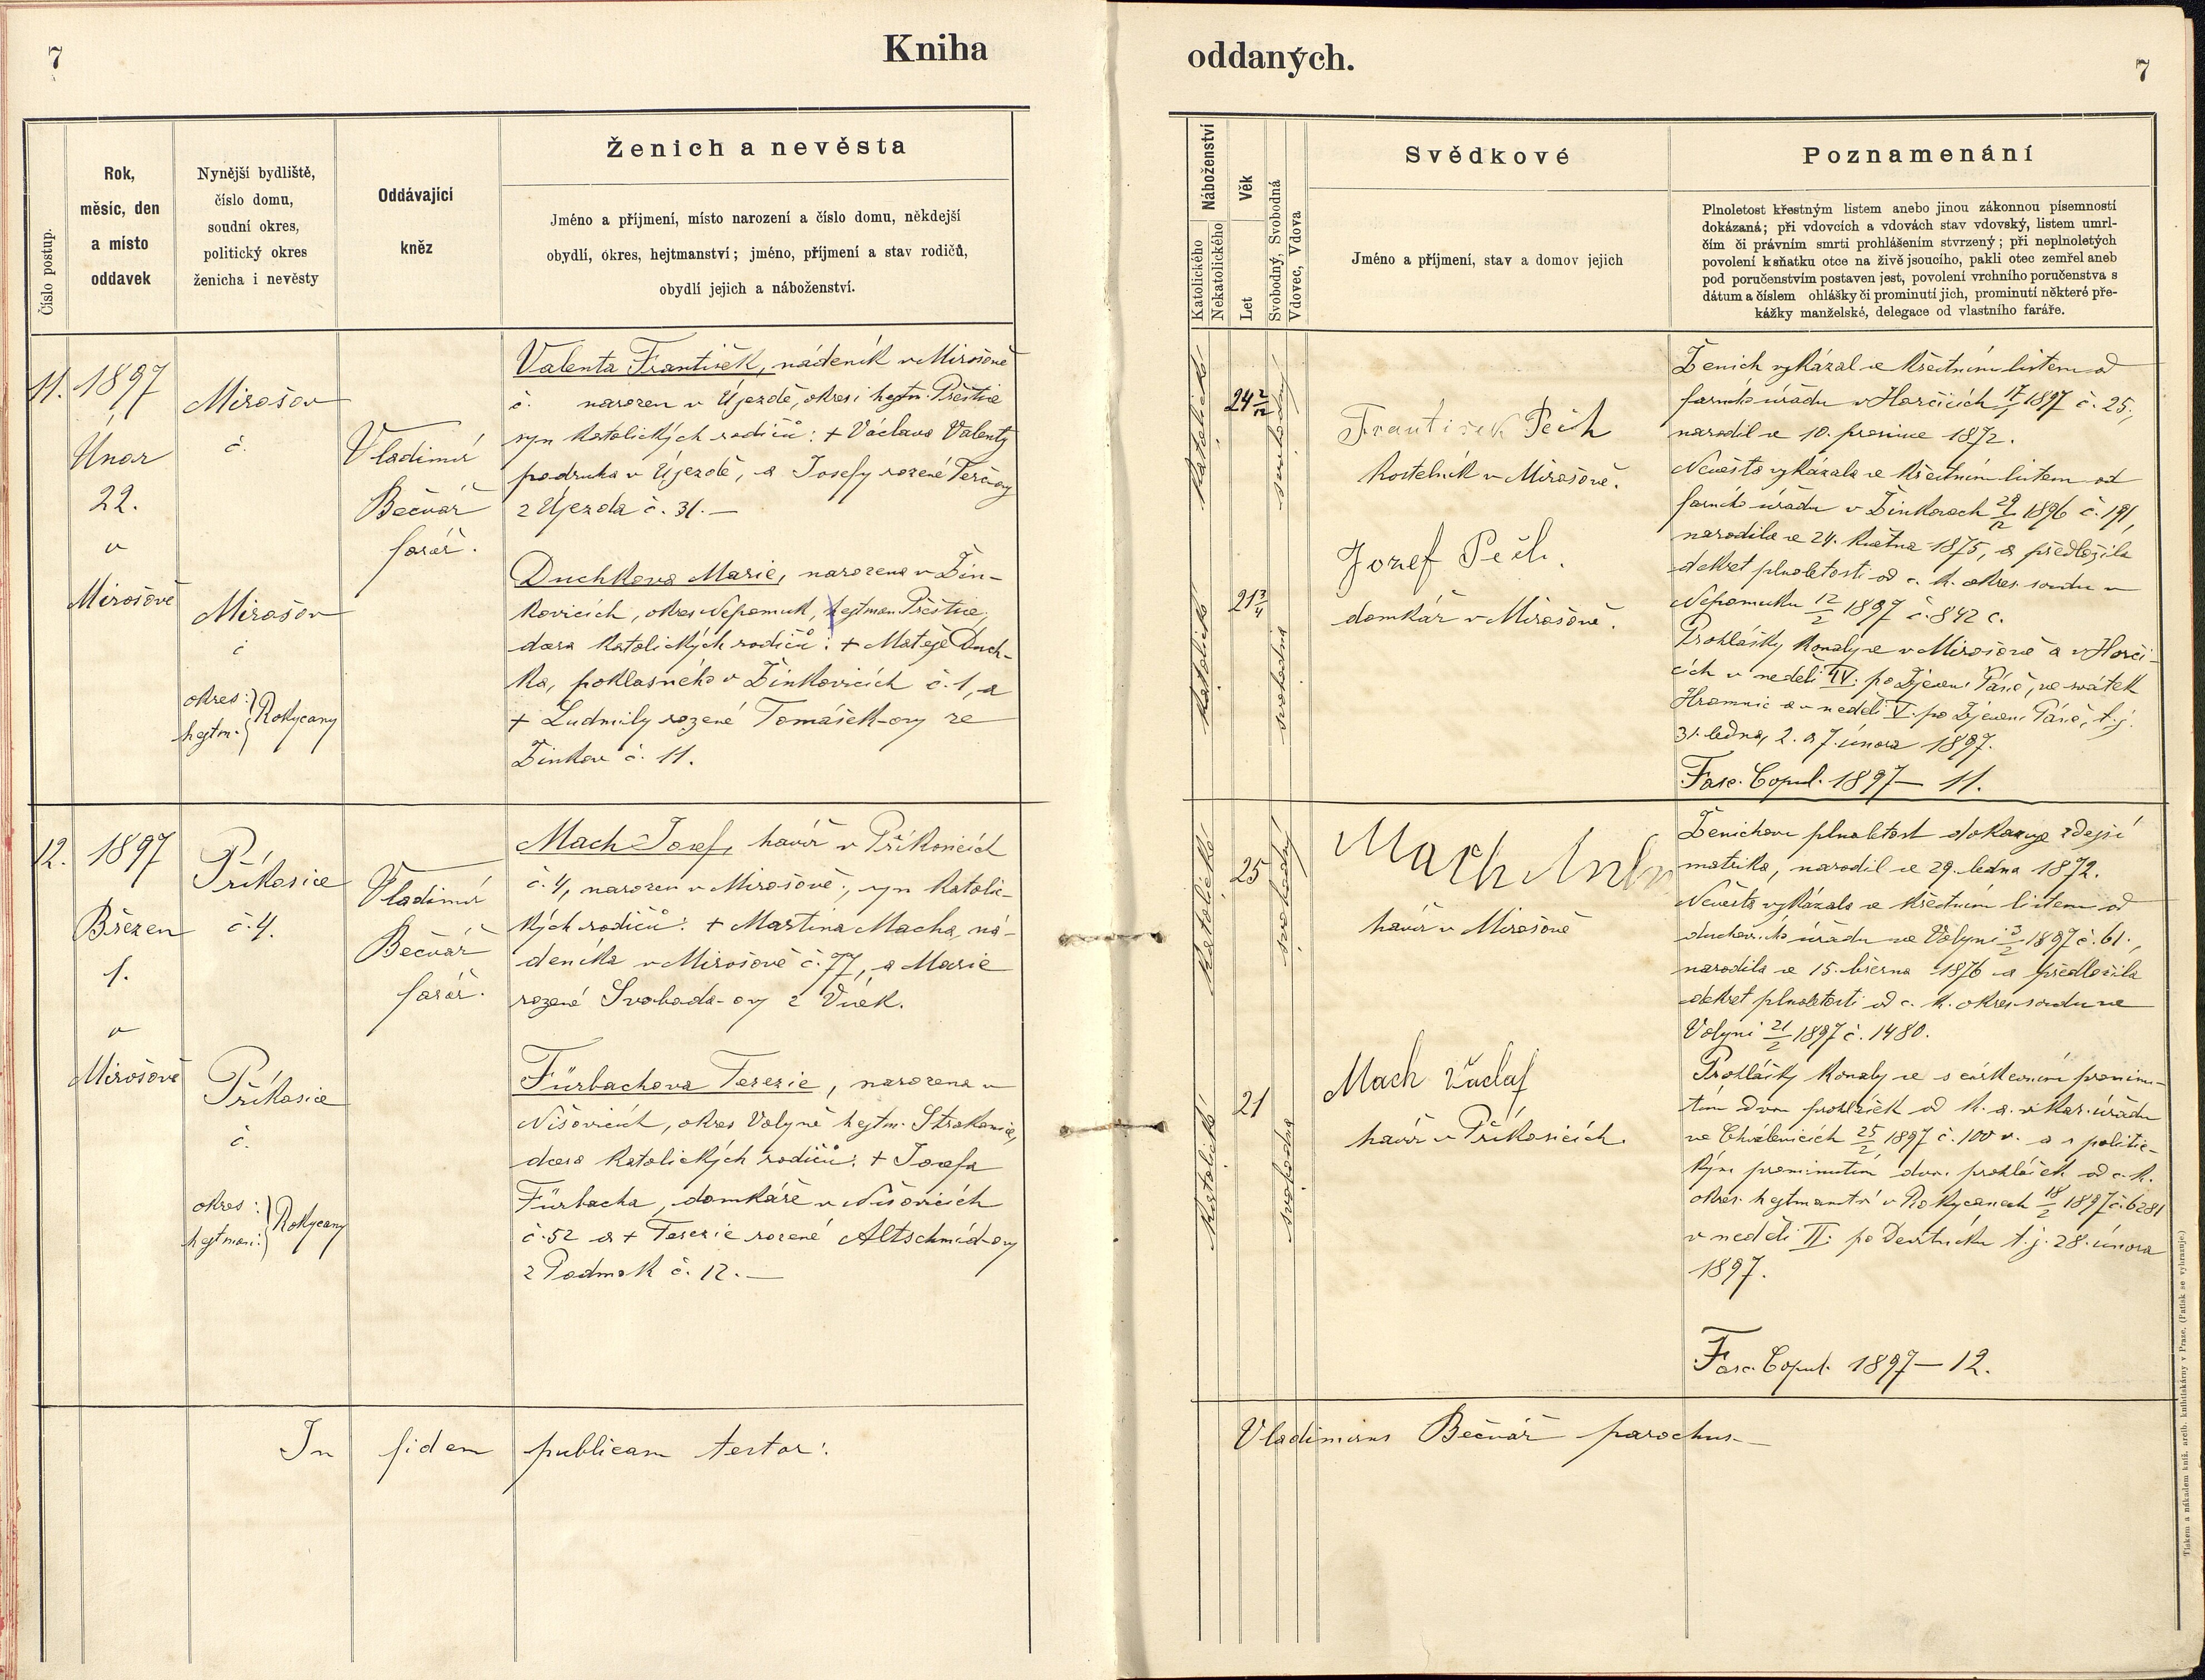 7
Kniha
oddaných.
7
Číslo postup.
Rok,
měsíc, den
a místo
oddavek
Nynější bydliště,
číslo domu,
soudní okres,
politický okres
ženicha i nevěsty
Oddávající
kněz
Ženich a nevěsta
Jméno a příjmení, místo narození a číslo domu, někdejší
obydlí, okres, hejtmanství; jméno, příjmení a stav rodičů,
obydlí jejich a náboženství.
Náboženství
Katolického
Nekatolického
Věk
Let
Svobodný, Svobodná
Vdovec, Vdova
Svědkové
Jméno a příjmení, stav a domov jejich
Poznamenání
Plnoletost křestným listem anebo jinou zákonnou písemností
dokázaná; při vdovcích a vdovách stav vdovský, listem umrl-
čím či právním smrti prohlášením stvrzený; při neplnoletých
povolení k sňatku otce na živě jsoucího, pakli otec zemřel aneb
pod poručenstvím postaven jest, povolení vrchního poručenstva s
dátum a číslem ohlášky či prominutí jich, prominutí některé pře-
kážky manželské, delegace od vlastního faráře.
11.
1897
Únor
22.
v
Mirošově
Mirošov
č.
Mirošov
č
okres:
hejtm.
Rokycany
Vladimír
Bečvář
farář.
Valenta František, nádeník v Mirošově
č. narozen v Újezdě, okres i hejtm. Přeštice
syn katolických rodičů: + Václava Valenty
podruha v Újezdě, a Josefy rozené Terčovy
z Újezda č. 31.—
Duchkova Marie, narozena v Žin-
kovicích, okres Nepomuk, hejtman. Přeštice,
dcera katolických rodičů: + Matěje Duch-
ka, poklasného v Žinkovicích č. 1, a
+ Ludmily rozené Tomášek-ovy ze
Žinkov č. 11.
katolické
24 2/12
svobodný
katolické
21 3/4
svobodná
František Pech
kostelník v Mirošově.
Jozef Pech.
domkář v Mirošově.
Ženich vykázal se křestním listem od
farního úřadu v Horčicích 17/1 1897 č. 25.,
narodil se 10. prosince 1872.
Nevěsta vykázala se křestním listem od
farního úřadu v Žinkovech 29/12 1896 č. 191,
narodila se 24. května 1875, a předložila
dekret plnoletosti od c. k. okres. soudu v
Nepomuku 12/2 1897 č. 842 c.
Prohlášky konaly se v Mirošově a v Horči-
cích v neděli IV. po Zjevení Páně, ve svátek
Hromnic a v neděli V. po Zjevení Páně, t. j.
31. ledna, 2. a 7. února 1897.
Fasc. Copul. 1897 — 11.
12.
1897
Březen
1.
v
Mirošově
Příkosice
č. 4.
Příkosice
č.
okres:
hejtman:
Rokycany
Vladimír
Bečvář
farář.
Mach Josef, havíř v Příkosicích
č. 4, narozen v Mirošově, syn katolic-
kých rodičů: + Martina Macha, ná-
deníka v Mirošově č. 77, a Marie
rozené Svoboda-ovy z Vísek.
Fürbachova Terezie, narozena v
Nišovicích, okres Volyně hejtm. Strakonice,
dcera katolických rodičů: + Josefa
Fürbacha, domkáře v Nišovicích
č. 52 a + Terezie rozené Altschmid-ovy
z Podmok č. 12.—
katolické
25
svobodný
katolické
21
svobodná
Mach
havíř v Mirošově
Mach Václaf
havíř v Příkosicích.
Ženichovu plnoletost dokazuje zdejší
matrika, narodil se 29. ledna 1872.
Nevěsta vykázala se křestním listem od
duchovního úřadu ve Volyni 3/2 1897 č. 61.,
narodila se 15. března 1876 a předložila
dekret plnoletosti od c. k. okres. soudu ve
Volyni 21/2 1897 č. 1480.
Prohlášky konaly se s církevním prominu-
tím dvou prohlášek od k. a. vikar. úřadu
ve Chválenicích 25/2 1897 č. 100 v. a s politic-
kým prominutím dvou prohlášek od c. k.
okres. hejtmanství v Rokycanech 18/2 1897 č. 6281
v neděli II. po Devítníku t. j. 28. února
1897.
Fasc. Copul. 1897 — 12.
In fidem publicam testor:
Vladimirus Bečvář parochus.—
Tiskem a nákladem kníž. arcib. knihtiskárny v Praze. (Patisk se vyhrazuje.)